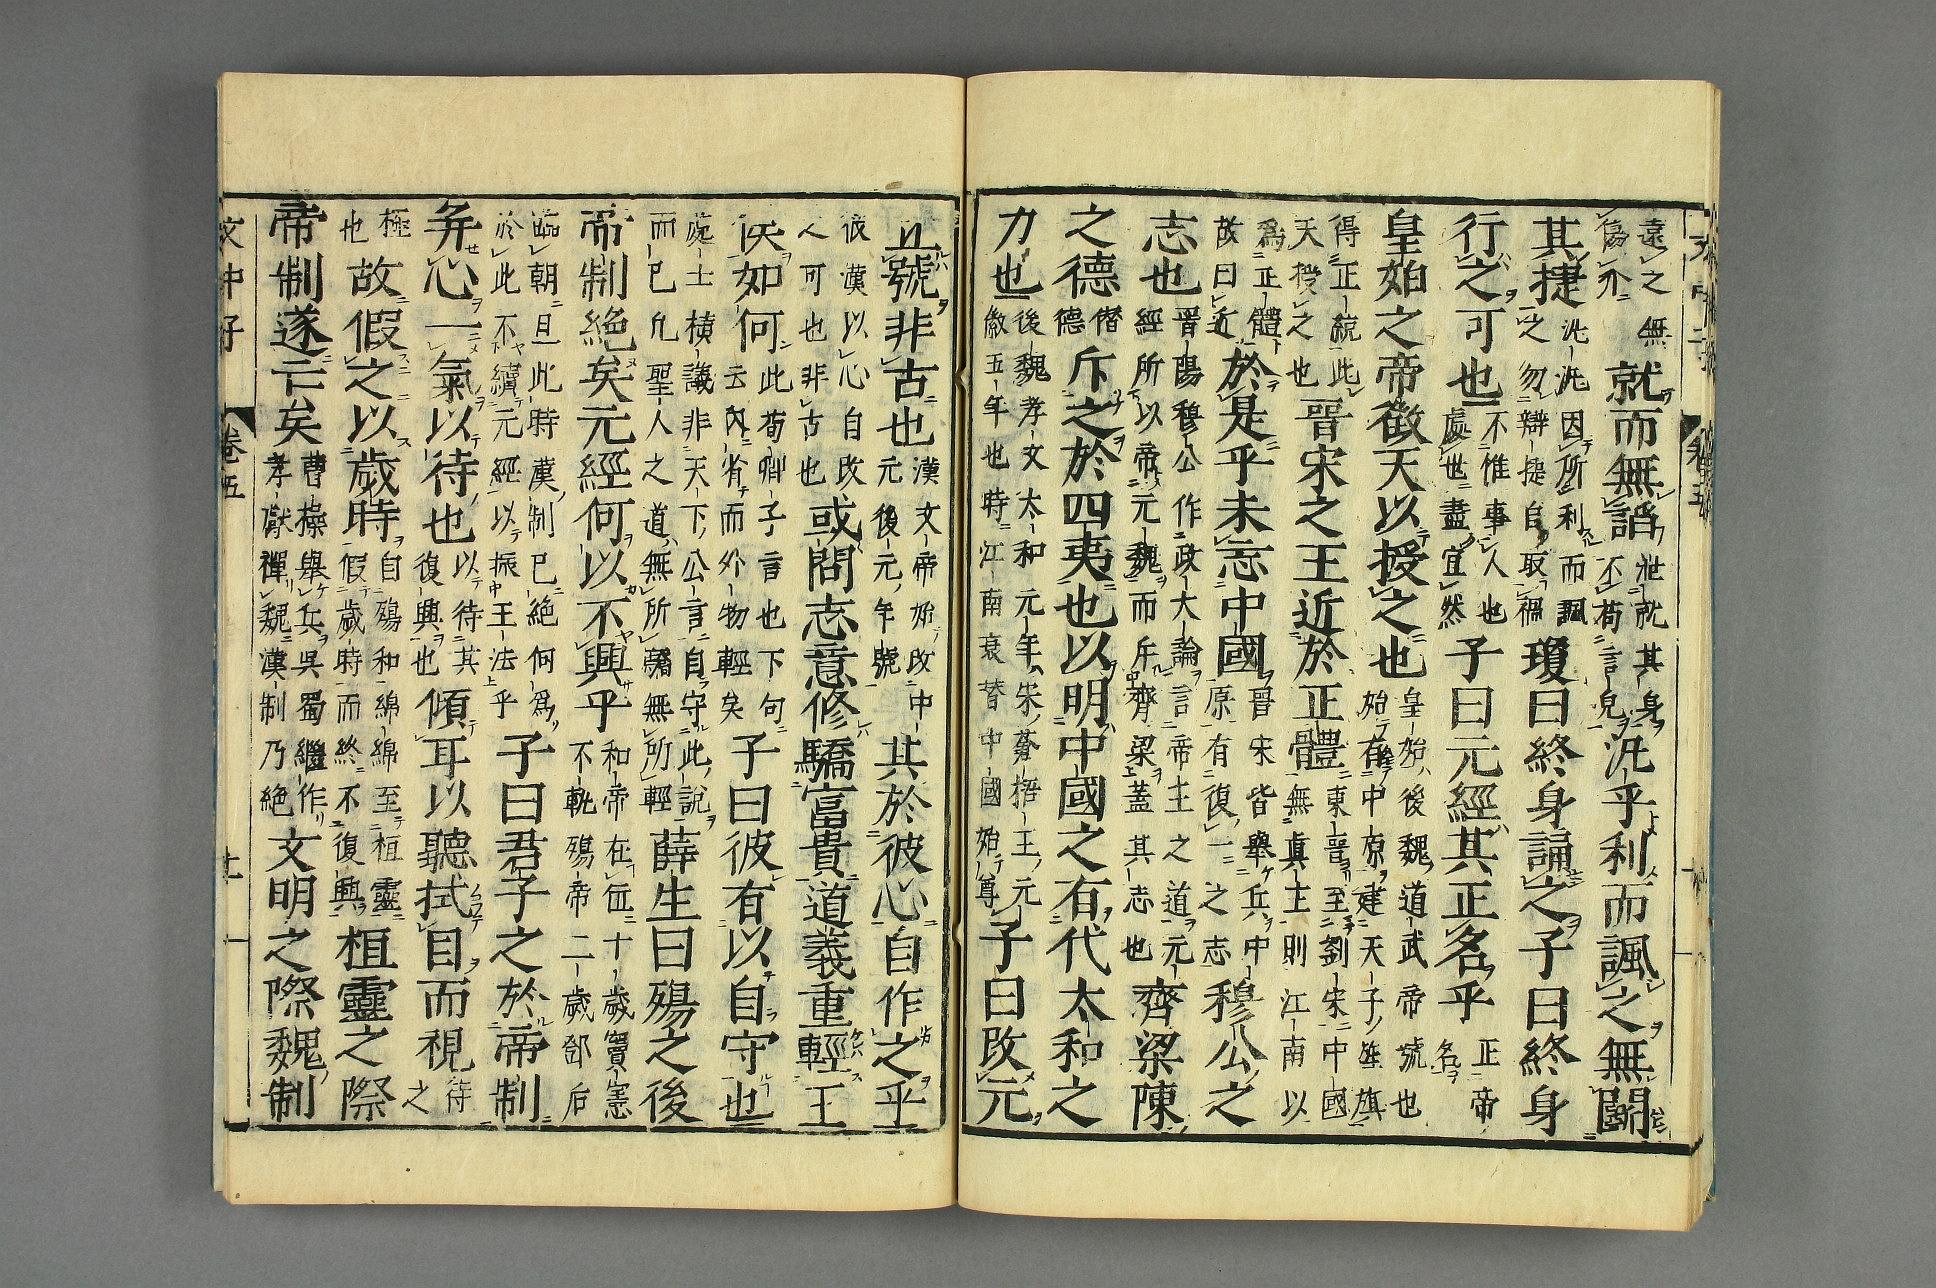 遠之無傷介就而無諂泄就其身不苟言皃汎乎利而諷之無鬬
其捷汎汎因所利而諷之勿辯捷自取禍瓊曰終身誦之子曰終身
行之可也不惟事人也處世盡宜然子曰元經其正名乎正帝名
皇始之帝徵天以授之也皇始後魏道武帝號也始有中原建天子旌旗
得正統此天授之也晉宋之王近於正體東晉至劉宋中國無眞主則江南以
爲正體故曰近於是乎未忘中國晉宋皆舉兵中原有復一之志穆公之
志也晉陽穆公作政大論言帝王之道元經所以帝元魏而斥齊梁蓋其志也齊梁陳
之德僭德斥之於四夷也以明中國之有代太和之
力也後魏孝文太和元年宋蒼梧王元徽五年也時江南衰替中國始尊子曰改元
立號非古也漢文帝始改中元後元年號其於彼心自作之乎
彼漢以心自改人可也非古也或問志意修驕富貴道義重輕王
侯如何此荀卿子言也下句云內省而外物輕矣子曰彼有以自守也
處士橫議非天下公言自守此說而已凡聖人之道無所驕無所輕薛生曰殤之後
帝制絕矣元經何以不興乎和帝在位十歲竇憲不軌殤帝二歲鄧后
臨朝且此時漢制已絕何爲於此不續元經以振王法乎子曰君子之於帝制
并心一氣以待也以待其復興也傾耳以聽拭目而視待之
極也故假之以歲時自殤和綿綿至桓靈假歲時而終不復興桓靈之際
帝制遂亡矣曹操舉兵吳蜀繼作孝獻禪魏漢制乃絕文明之際魏制
文中子 卷五 十一